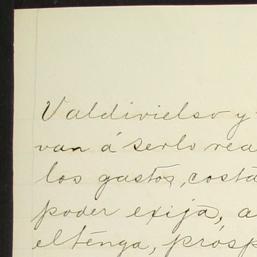 Valdivielso y
van á serlo rea
los gastos, costa
poder exija, a
el tenga, prosp